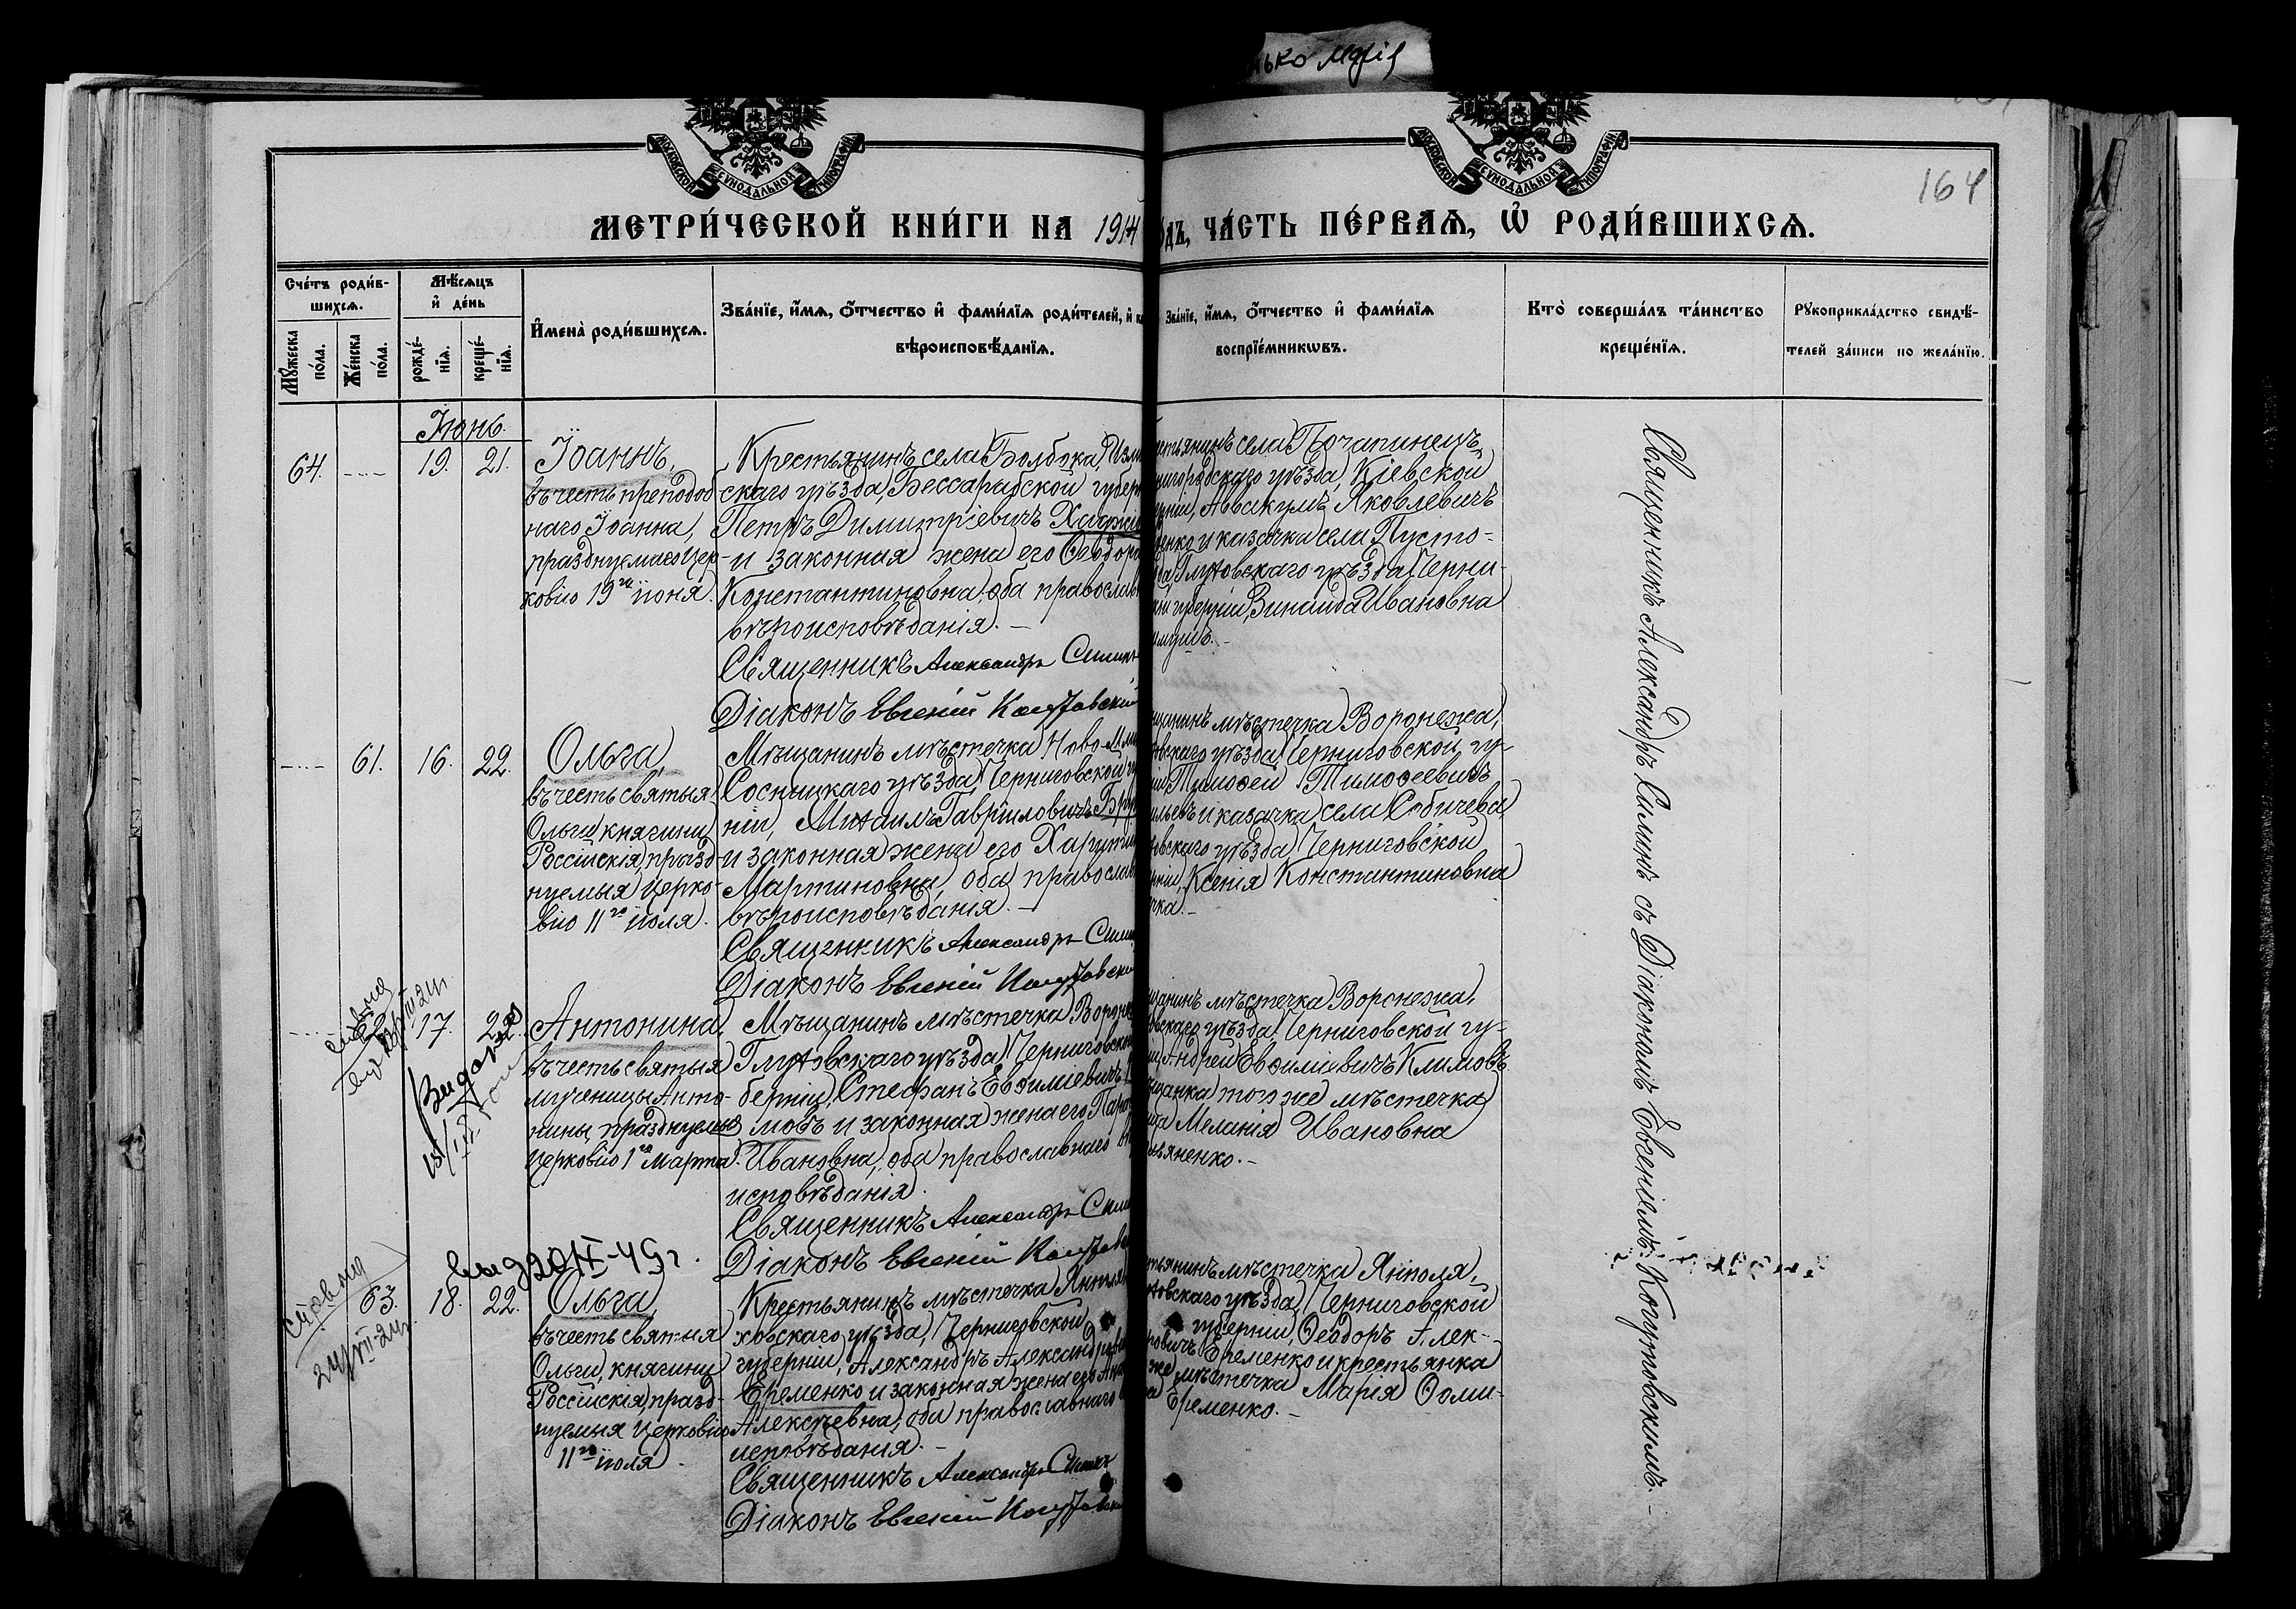 лько мужс
МОСКОВСКОЙ СѴНОДАЛЬНОЙ ТИПОГРАФІИ
МОСКОВСКОЙ СѴНОДАЛЬНОЙ ТИПОГРАФІИ
164
МЕТРИ́ЧЕСКОЙ КНИ́ГИ НА 1914
ОДЪ, ЧА́СТЬ ПЕ́РВАѦ, Ѡ҆ РОДИ́ВШИХСѦ.
Сче́тъ роди́в-
шихсѧ.
Мꙋ́жеска по́ла.
Же́нска по́ла.
Мѣ́сѧцъ
и҆ де́нь
рожде́-
нїѧ.
креще́-
нїѧ.
И҆мена̀ роди́вшихсѧ.
Зва́нїе, и҆́мѧ, ѻ҆́тчество и҆ фами́лїѧ роди́телей, и҆ к
вѣроисповѣ́данїѧ.
Зва́нїе, и҆́мѧ, ѻ҆́тчество и҆ фами́лїѧ
воспрїе́мникѡвъ.
Кто̀ соверша́лъ та́инство
креще́нїѧ.
Рꙋкоприкла́дство свидѣ́-
телей за́писи по жела́нїю.
Іюнь.
64. 19. 21.
Іоаннъ,
въ честь преподоб
наго Іоанна,
празднуемаго Цер-
ковію 19го іюня.
Крестьянинъ села Болбока, Изм
скаго уѣзда, Бессарабской губер
Петръ Димитріевичъ Хаджи
и законная жена его Ѳеодор
Константиновна, оба православ
вѣроисповѣданія.
Священникъ Александръ Симин
Діаконъ Евгеній Когутовскій
стьянинъ села Почапинецъ,
нигородскаго уѣзда, Кіевской
рніи, Аввакумъ Яковлевичъ
енко и казачка села Пусто-
Глуховскаго уѣзда, Черни-
губерніи, Зинаида Ивановна
61. 16. 22.
Ольга,
въ честь святыя
Ольги, княгини
Россійскія, празд
нуемыя Церко-
вію 11го іюля.
Мѣщанинъ мѣстечка Ново-Мли
Сосницкаго уѣзда, Черниговской гу
ніи, Михаилъ Гавріиловичъ Бру
и законная жена его Харити
Мартиновна, оба православ
вѣроисповѣданія.
Священникъ Александръ Сими
Діаконъ Евгеній Когутовскі
щанинъ мѣстечка Воронежа,
овскаго уѣзда, Черниговской гу-
ніи Тимоѳей Тимоѳеевичъ
ильевъ и казачка села Собичева,
овскаго уѣзда, Черниговской
рніи, Ксенія Константиновна
чка.
17. 22.
Антонина,
въ честь святыя
мученицы Анто-
нины, празднуемыя
Церковію 1го Марта.
Мѣщанинъ мѣстечка Вороне
Глуховскаго уѣзда, Черниговской
берніи, Стефанъ Евѳиміевичъ К
мовъ и законная жена его Пара
Ивановна, оба православнаго вѣ
исповѣданія.
Священникъ Александръ Сими
Діаконъ Евгеній Когутовс
щанинъ мѣстечка Воронежа,
овскаго уѣзда, Черниговской гу-
іи, Андрей Евѳиміевичъ Климовъ
щанка того же мѣстечка
Меланія Ивановна
ьяненко.
выд 20 IX-49 г.
63. 18. 22.
24/VIII-24г.
Ольга,
въ честь святыя
Ольги, княгини
Россійскія, празд-
нуемыя Церковію
11го іюля.
Крестьянинъ мѣстечка Янпол
ховскаго уѣзда, Черниговской
губерніи, Александръ Александров
Еременко и законная жена его Ан
Алексѣевна, оба православнаго в
исповѣданія.
Священникъ Александръ Симин
Діаконъ Евгеній Когутовскі
тьянинъ мѣстечка Янполя,
ховскаго уѣзда, Черниговской
губерніи, Ѳеодоръ Алек-
ровичъ Еременко и крестьянка
же мѣстечка Марія Ѳоми-
а Еременко.
Священникъ Александръ Симинъ съ Діакономъ Евгеніемъ Когутовскимъ.